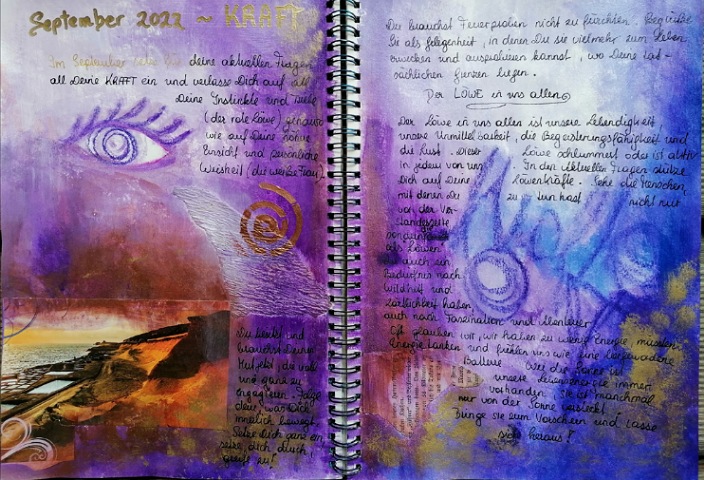 September 2022 ~ KRAFT
Im September setze Du deine aktuellen Fragen
all Deine KRAFT ein und verlasse Dich auf all
Deine Instinkte und Triebe
(der rote Löwe) genauso
wie auf Deine höhere
Einsicht und persönliche
Weisheit (die weiße Frau).
Du bist und
brauchst Deine
ganz zu
engagieren. Folge
dem, was Dich
innerlich bewegt.
Setze Dich ganz ein,
setze Dich durch!
greif zu!
Du brauchst Feuerproben nicht zu fürchten. Begrüße
Sie als Gelegenheit, in denen Du sie vielmehr zum Leben
erwecken und ausprobieren kannst, wo Deine tat-
sächlichen Grenzen liegen.
Der LÖWE in uns allen
Der Löwe in uns allen ist unsere Lebendigkeit,
unsere Unmittelbarkeit, die Begeisterungsfähigkeit und
die Lust. Dieser Löwe schlummert oder ist aktiv
in jedem von uns. In den aktuellen Fragen stütze
Dich auf Deine Löwenkräfte. Sehe die Menschen,
mit denen Du zu tun hast nicht nur
von der Ver-
standesseite
sondern
als Löwen
die auch ein
Bedürfnis nach
Wildheit und
Zärtlichkeit haben
auch nach Faszination und Abenteuer.
Oft glauben wir, wir haben zu wenig Energie, müssten
Energie tanken und fühlen uns wie eine leere
Batterie. Aber die Sonne ist
unsere Lebensenergie immer
vorhanden. Sie ist manchmal
nur von der Sonne versteckt.
Bringe sie zum Vorschein und lasse
sie heraus!